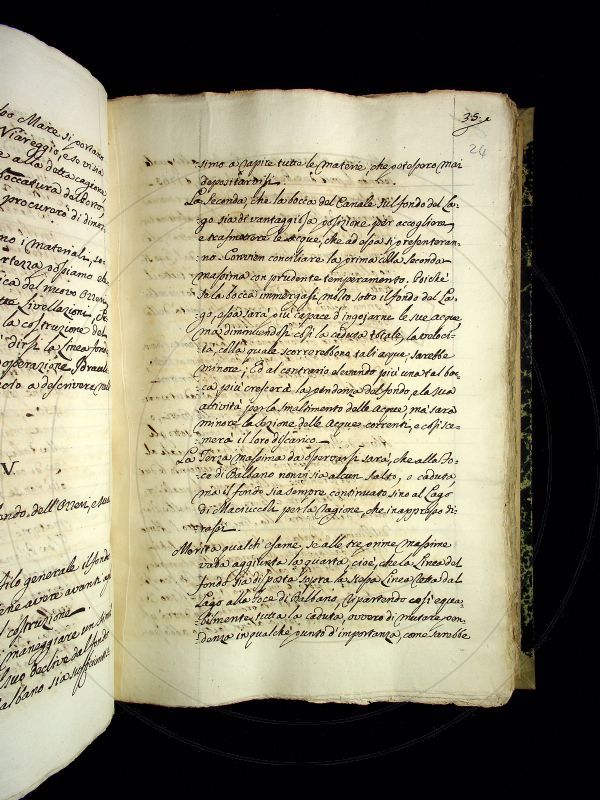 lso Mare si portano
Viareggio, e se vi sia
e alla detta cagione
boccatura del Porto,
procurerò di dimos
no i materiali,
rtezza possiamo
ica del nuovo Ozzeri
ue Livellazioni,
la costruzione del
dirsi la Linea fonda
operazione Idraulic
cio a descrivere nel
V.
ondo, dell'Ozzeri, e
filo generale il fondo
iene avere avanti
i costruzione
i maneggiare un
suo declive dal fondo
albano sia sufficiente
35.
24
simo a rapire tutte le materie, che potessero mai
depositarvisi.
La Seconda, che la bocca del Canale sul fondo del La-
go sia di vantaggiosa posizione per accogliere,
e trasmettere le acque, che ad essa si presenteran-
no. Convien conciliare la prima colla seconda
massima con prudente temperamento. Poichè
se la bocca immergasi molto sotto il fondo del La-
go, essa sarà più capace d'ingojarne le sue acque
ma diminuendosi così la caduta totale, la veloci-
tà, colla quale scorrerebbono tali acque, sarebbe
minore; Ed al contrario elevando più una tal boc-
ca più crescerà la pendenza del fondo, e la sua
attività per lo smaltimento delle Acque, ma sarà
minore la sezione delle Acque correnti, e così sce-
merà il loro discarico.
La Terza massima da osservarsi sarà, che alla Fo-
ce di Balbano non vi sia alcun salto, o caduta,
ma il fondo sia sempre continuato sino al Lago
di Maciuccoli per la ragione, che in appresso di-
rassi.
Merita qualch'esame, se alle tre prime massime
vada aggiunta la quarta, cioè, che la Linea del
fondo sia disposta sopra la stessa Linea retta dal
Lago alla Foce di Balbano, ripartendo così equa-
bilmente tutta la caduta, ovvero di mutare pen-
denza in qualche punto d'importanza, come sarebbe